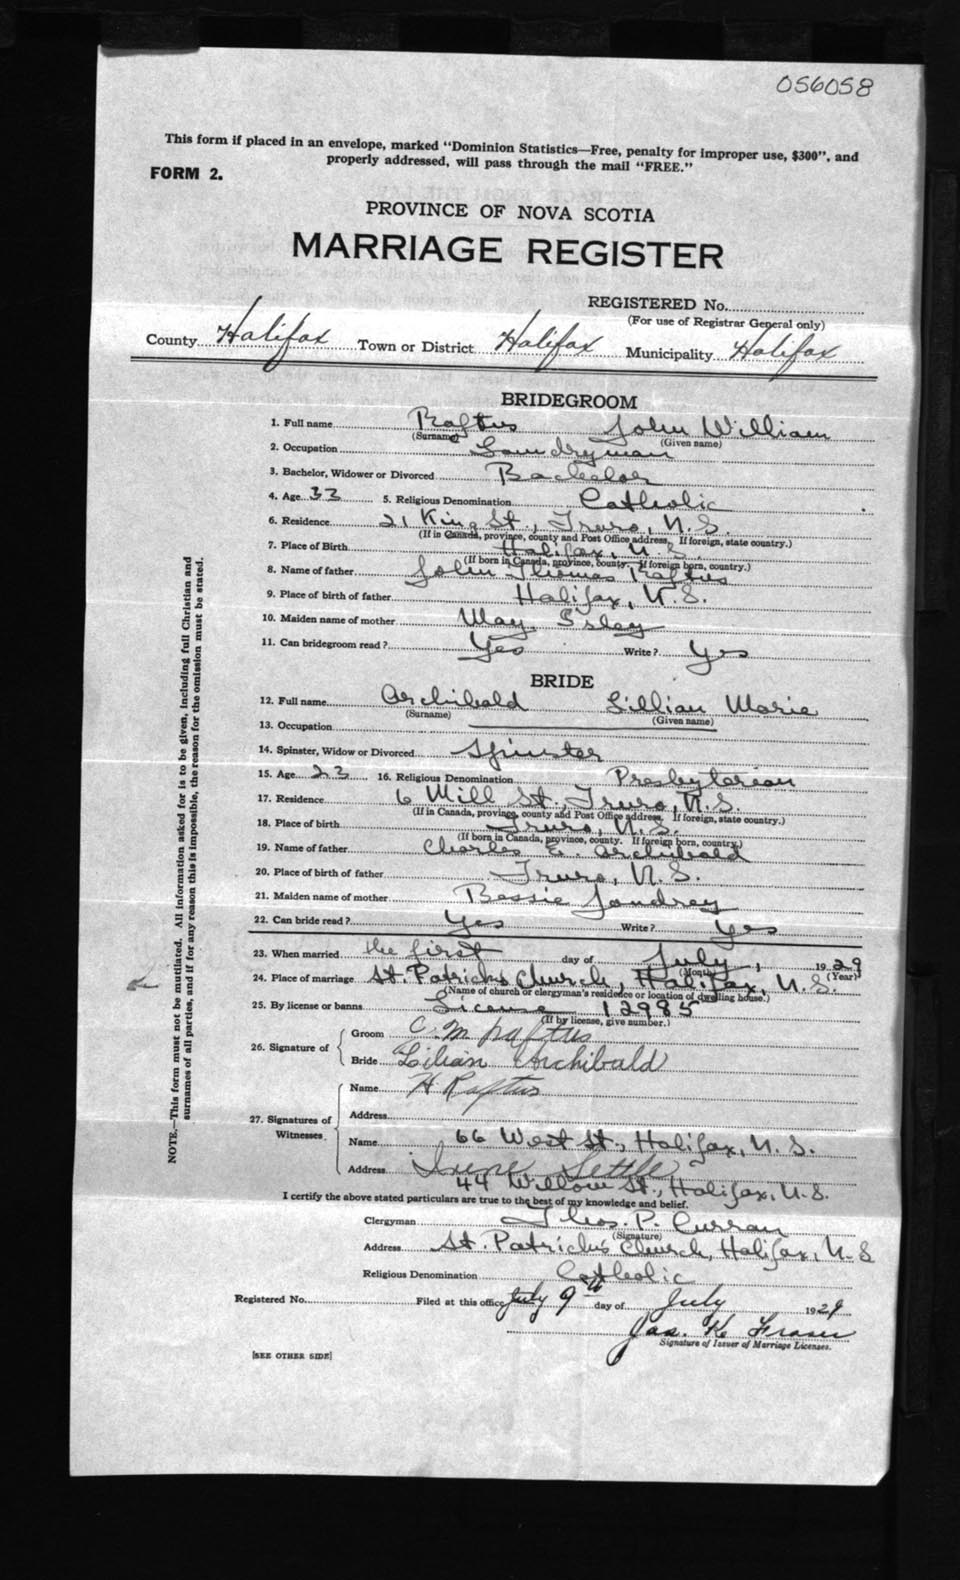 056058
This form if placed in an envelope, marked "Dominion Statistics—Free, penalty for improper use, $300", and
properly addressed, will pass through the mail "FREE."
FORM 2.
PROVINCE OF NOVA SCOTIA
MARRIAGE REGISTER
REGISTERED No.
(For use of Registrar General only)
County Halifax Town or District Halifax Municipality Halifax
BRIDEGROOM
1. Full name Raftus John William
(Surname) (Given name)
2. Occupation Laundryman
3. Bachelor, Widower or Divorced Bachelor
4. Age 33 5. Religious Denomination Catholic
6. Residence 21 King St., Truro, N.S.
(If in Canada, province, county and Post Office address. If foreign, state country.)
7. Place of Birth Halifax, N.S.
(If born in Canada, province, county. If foreign born, country.)
8. Name of father John Thomas Raftus
9. Place of birth of father Halifax, N.S.
10. Maiden name of mother May Isley
11. Can bridegroom read? Yes Write? Yes
BRIDE
12. Full name Archibald Lillian Marie
(Surname) (Given name)
13. Occupation
14. Spinster, Widow or Divorced Spinster
15. Age 23 16. Religious Denomination Presbyterian
17. Residence 6 Mill St., Truro, N.S.
(If in Canada, province, county and Post Office address. If foreign, state country.)
18. Place of birth Truro, N.S.
(If born in Canada, province, county. If foreign born, country.)
19. Name of father Charles E. Archibald
20. Place of birth of father Truro, N.S.
21. Maiden name of mother Bessie Joudrey
22. Can bride read? Yes Write? Yes
23. When married the first day of July, 1929
(Month) (Year)
24. Place of marriage St. Patricks Church, Halifax, N.S.
(Name of church or clergyman's residence or location of dwelling house.)
25. By license or banns License 12985
(If by license, give number.)
26. Signature of Groom Raftus
Bride Lilian Archibald
27. Signatures of Witnesses
Name H Raftus
Address
Name 66 West St., Halifax, N.S.
Address Irene Settle
44 Willow St., Halifax, N.S.
I certify the above stated particulars are true to the best of my knowledge and belief.
Clergyman Thos. P. Curran
(Signature)
Address St. Patricks Church, Halifax, N.S
Religious Denomination Catholic
Registered No. Filed at this office July 9th day of July 1929
Jas. K Fraser
Signature of Issuer of Marriage Licenses.
[SEE OTHER SIDE]
NOTE.—This form must not be mutilated. All information asked for is to be given, including full Christian and
surnames of all parties, and if for any reason this is impossible, the reason for the omission must be stated.